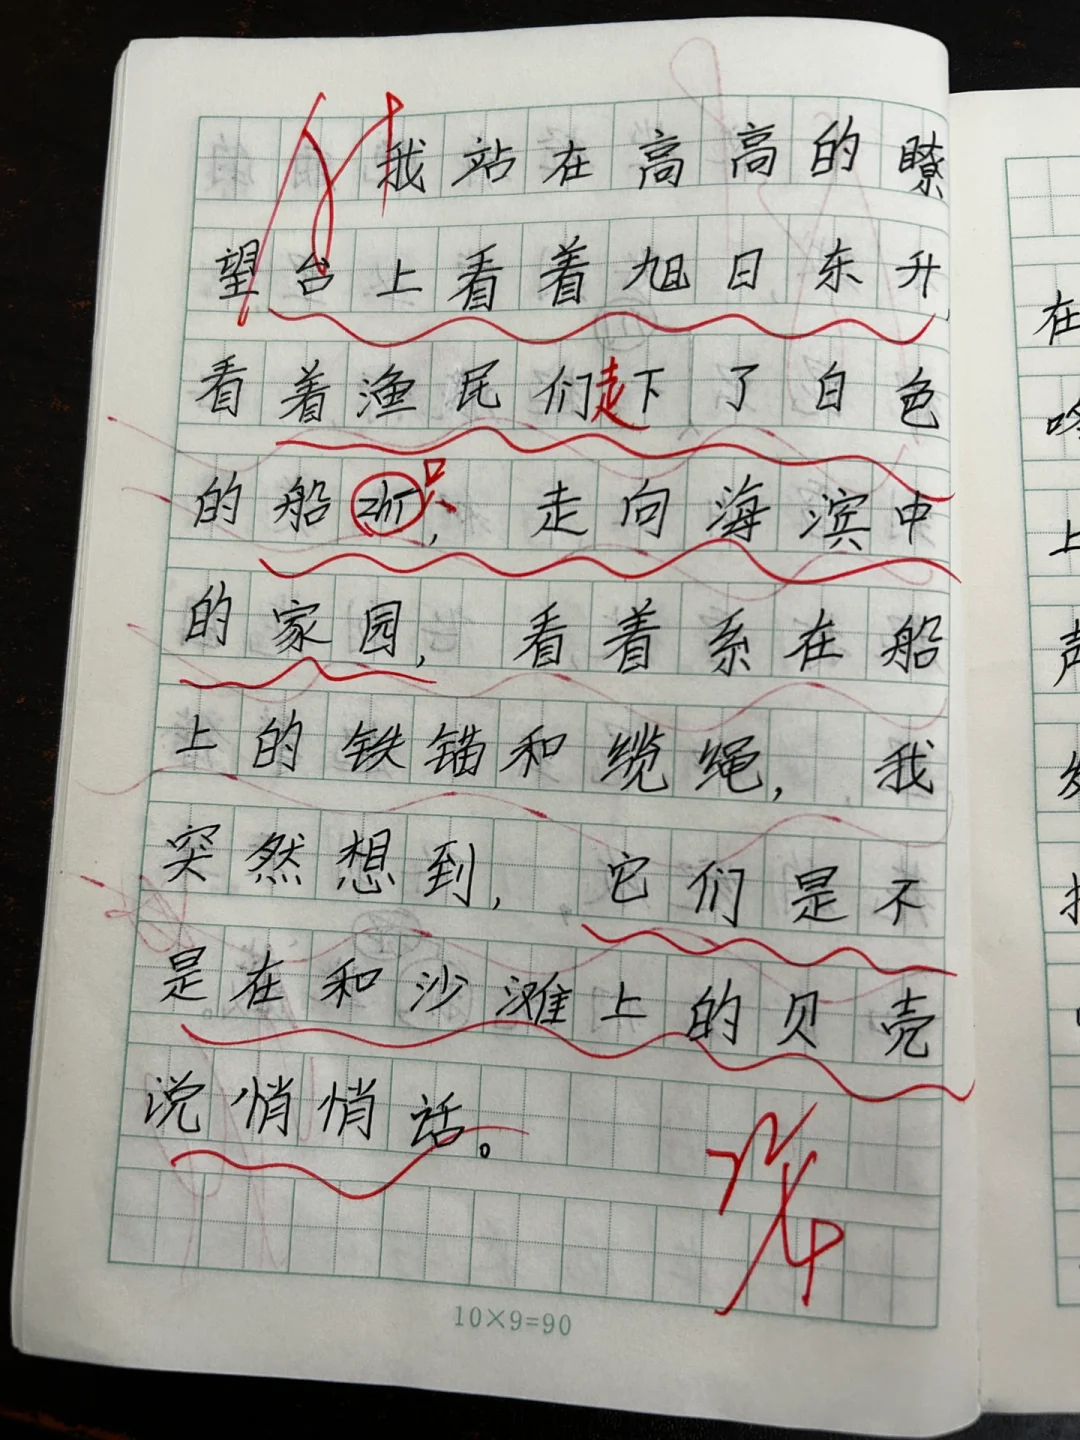 我站在高高的瞭
望台上看着旭日东升,
看着渔民们走下了白色
的船只,走向海滨中
的家园,看着系在船
上的铁锚和缆绳,我
突然想到,它们是不
是在和沙滩上的贝壳
说悄悄话。
10×9=90